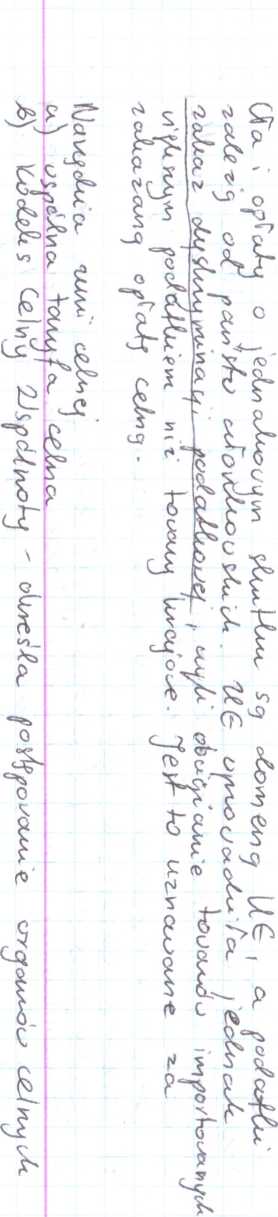 Cła i opłaty o jednakowym skutku są domeną UE, a podatki
zależą od państw członkowskich. UE wprowadziła jednak
zakaz dyskryminacji podatkowej, czyli obciążanie towarów importowanych
większym podatkiem niż towary krajowe. Jest to uznawane za
zakazaną opłatę celną.
Narzędzia unii celnej
a) wspólna taryfa celna
b) kodeks celny Wspólnoty - określa postępowanie organów celnych